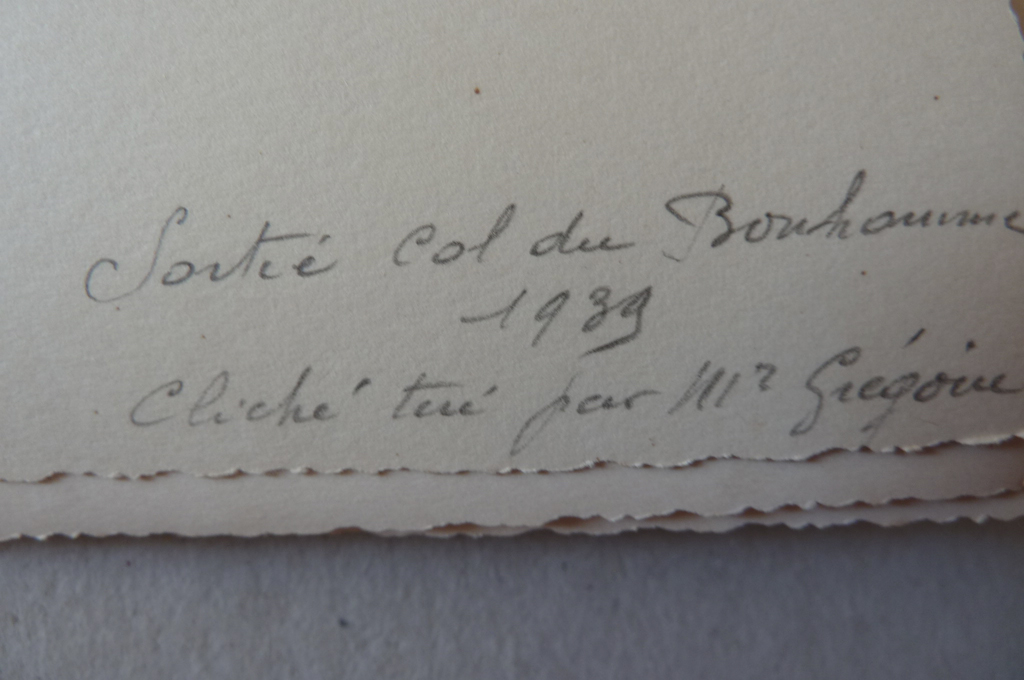 Sortie col du Bonhomme
1939
Cliché tiré par Mr Grégoire